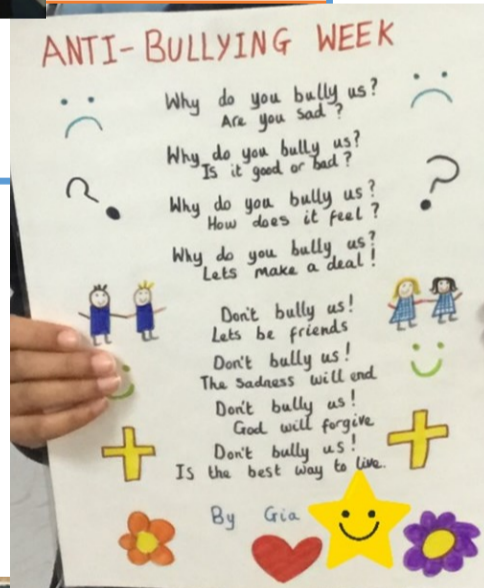 ANTI-BULLYING WEEK
Why do you bully us?
Are you sad?
Why do you bully us?
Is it good or bad?
Why do you bully us?
How does it feel?
Why do you bully us?
Lets make a deal!
Don't bully us!
Lets be friends
Don't bully us!
The sadness will end
Don't bully us!
God will forgive
Don't bully us!
Is the best way to live.
By Gia